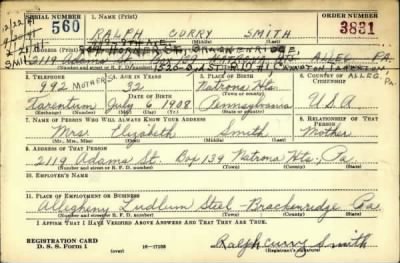 SERIAL NUMBER
1. NAME (Print)
ORDER NUMBER
560
RALPH CURRY SMITH
3831
(First) (Middle) (Last)
2. ADDRESS (Print)
2119 Adams ALLEG. PA.
(Number and street or R. F. D. number) (Town) (County) (State)
3. TELEPHONE
4. AGE IN YEARS
5. PLACE OF BIRTH
6. COUNTRY OF CITIZENSHIP
992 MOTHER'S
32
Natrona Hts.
Tarentum July 6 1908 Pennsylvania U.S.A
(Exchange) (Number) (Mo.) (Day) (Yr.) (State or country)
7. NAME OF PERSON WHO WILL ALWAYS KNOW YOUR ADDRESS
8. RELATIONSHIP OF THAT PERSON
Mrs. Elizabeth Smith Mother
(Mr., Mrs., Miss) (First) (Middle) (Last)
9. ADDRESS OF THAT PERSON
2119 Adams St. Box 139 Natrona Hts. Pa.
(Number and street or R. F. D. number) (Town) (County) (State)
10. EMPLOYER'S NAME
11. PLACE OF EMPLOYMENT OR BUSINESS
Allegheny Ludlum Steel - Brackenridge Pa.
(Number and street or R. F. D. number) (Town) (County) (State)
I AFFIRM THAT I HAVE VERIFIED ABOVE ANSWERS AND THAT THEY ARE TRUE.
REGISTRATION CARD
D. S. S. Form 1
(over)
16-17105
Ralph Curry Smith
(Registrant's signature)